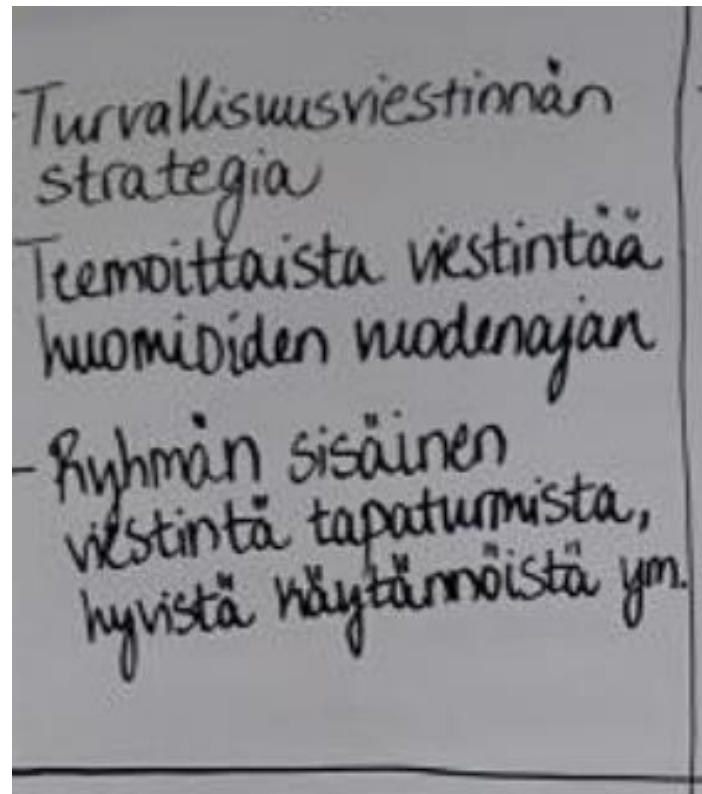 - Turvallisuusviestinnän
strategia
Teemoittaista viestintää
huomioiden vuodenajan
- Ryhmän sisäinen
viestintä tapaturmista,
hyvistä käytännöistä ym.